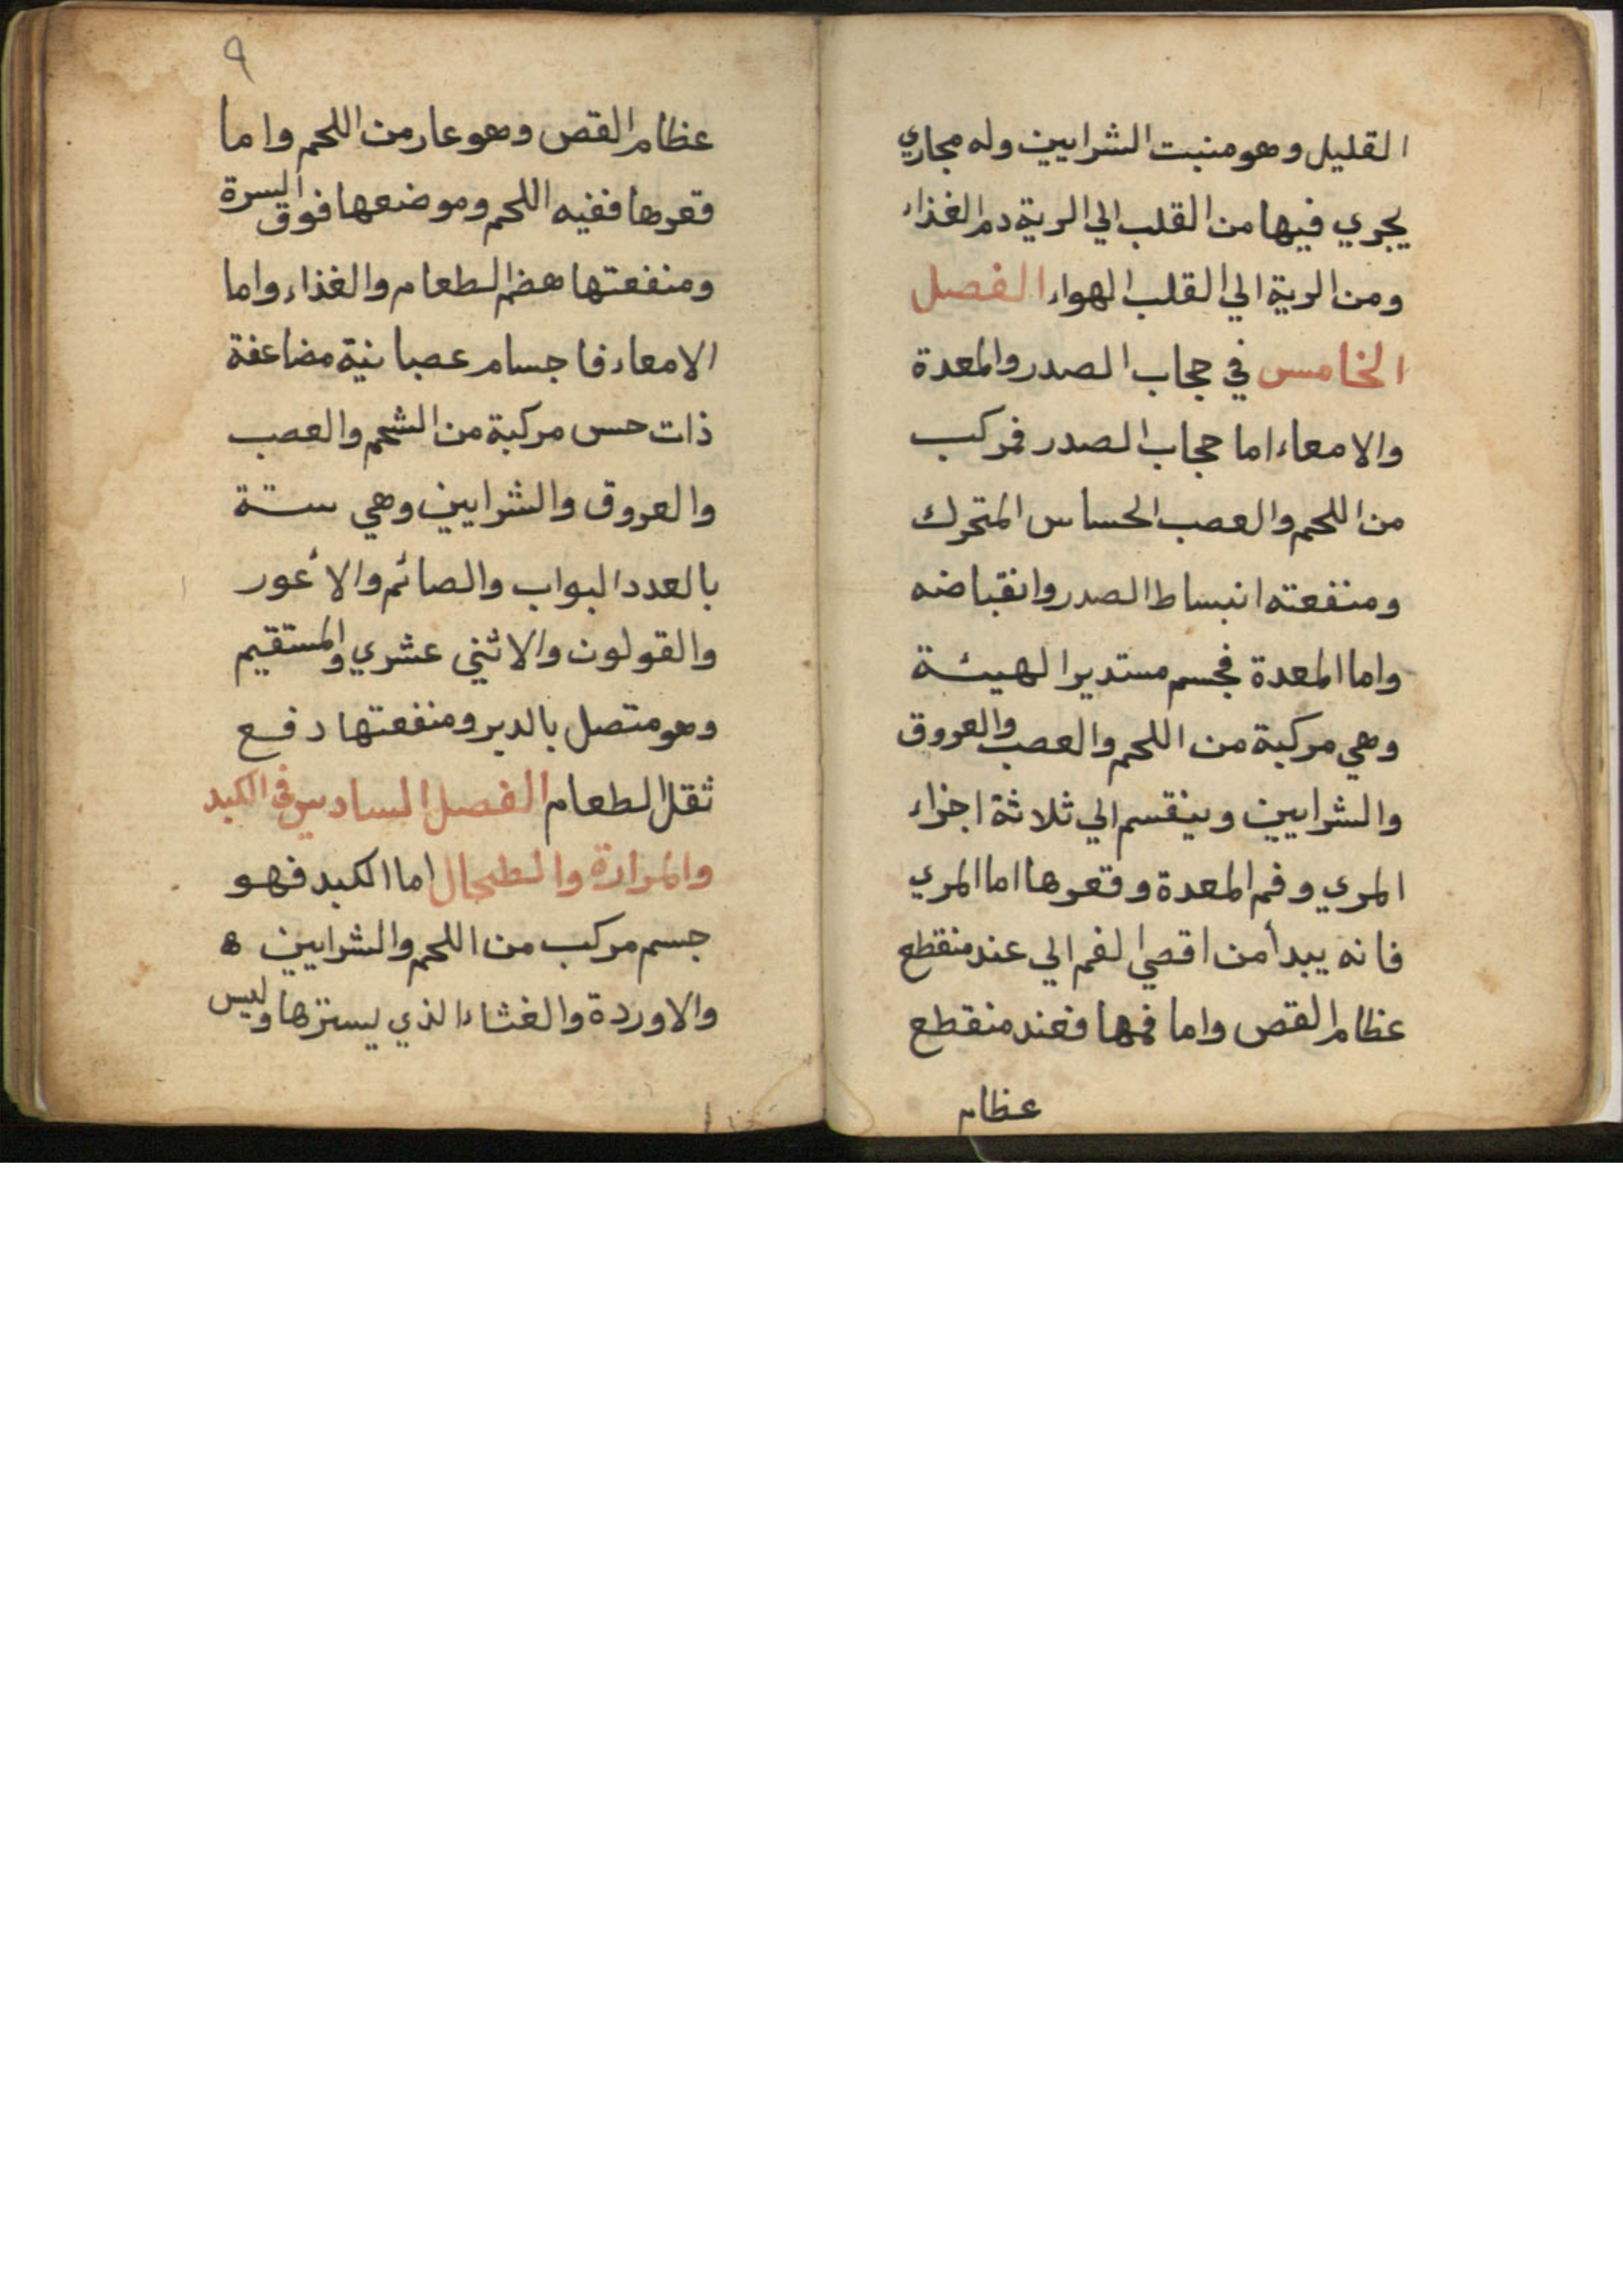 القليل وهو منبت الشرايين وله مجاري
يجري فيها من القلب الي الرية دم الغذاء
ومن الرية الي القلب الهواء الفصل
الخامس في حجاب الصدر والمعدة
والامعاء اما حجاب الصدر فمركب
من اللحم والعصب الحساس المتحرك
ومنفعته انبساط الصدر وانقباضه
واما المعدة فجسم مستدير الهيئة
وهي مركبة من اللحم والعصب والعروق
والشرايين وينقسم الي ثلاثة اجزاء
المري وفم المعدة وقعرها اما المري
فانه يبدأ من اقصي الفم الي عند منقطع
عظام القص واما فمها فعند منقطع
عظام
٩
عظام القص وهو عار من اللحم واما
قعرها ففيه اللحم وموضعها فوق السرة
ومنفعتها هضم الطعام والغذاء واما
الامعاء فاجسام عصبانية مضاعفة
ذات حس مركبة من الشحم والعصب
والعروق والشرايين وهي ستة
بالعدد البواب والصائم والأعور
والقولون والاثني عشري والمستقيم
وهو متصل بالدبر ومنفعتها دفع
ثقل الطعام الفصل السادس في الكبد
والمرارة والطحال اما الكبد فهو
جسم مركب من اللحم والشرايين ه
والاوردة والغشاء الذي يسترها وليس